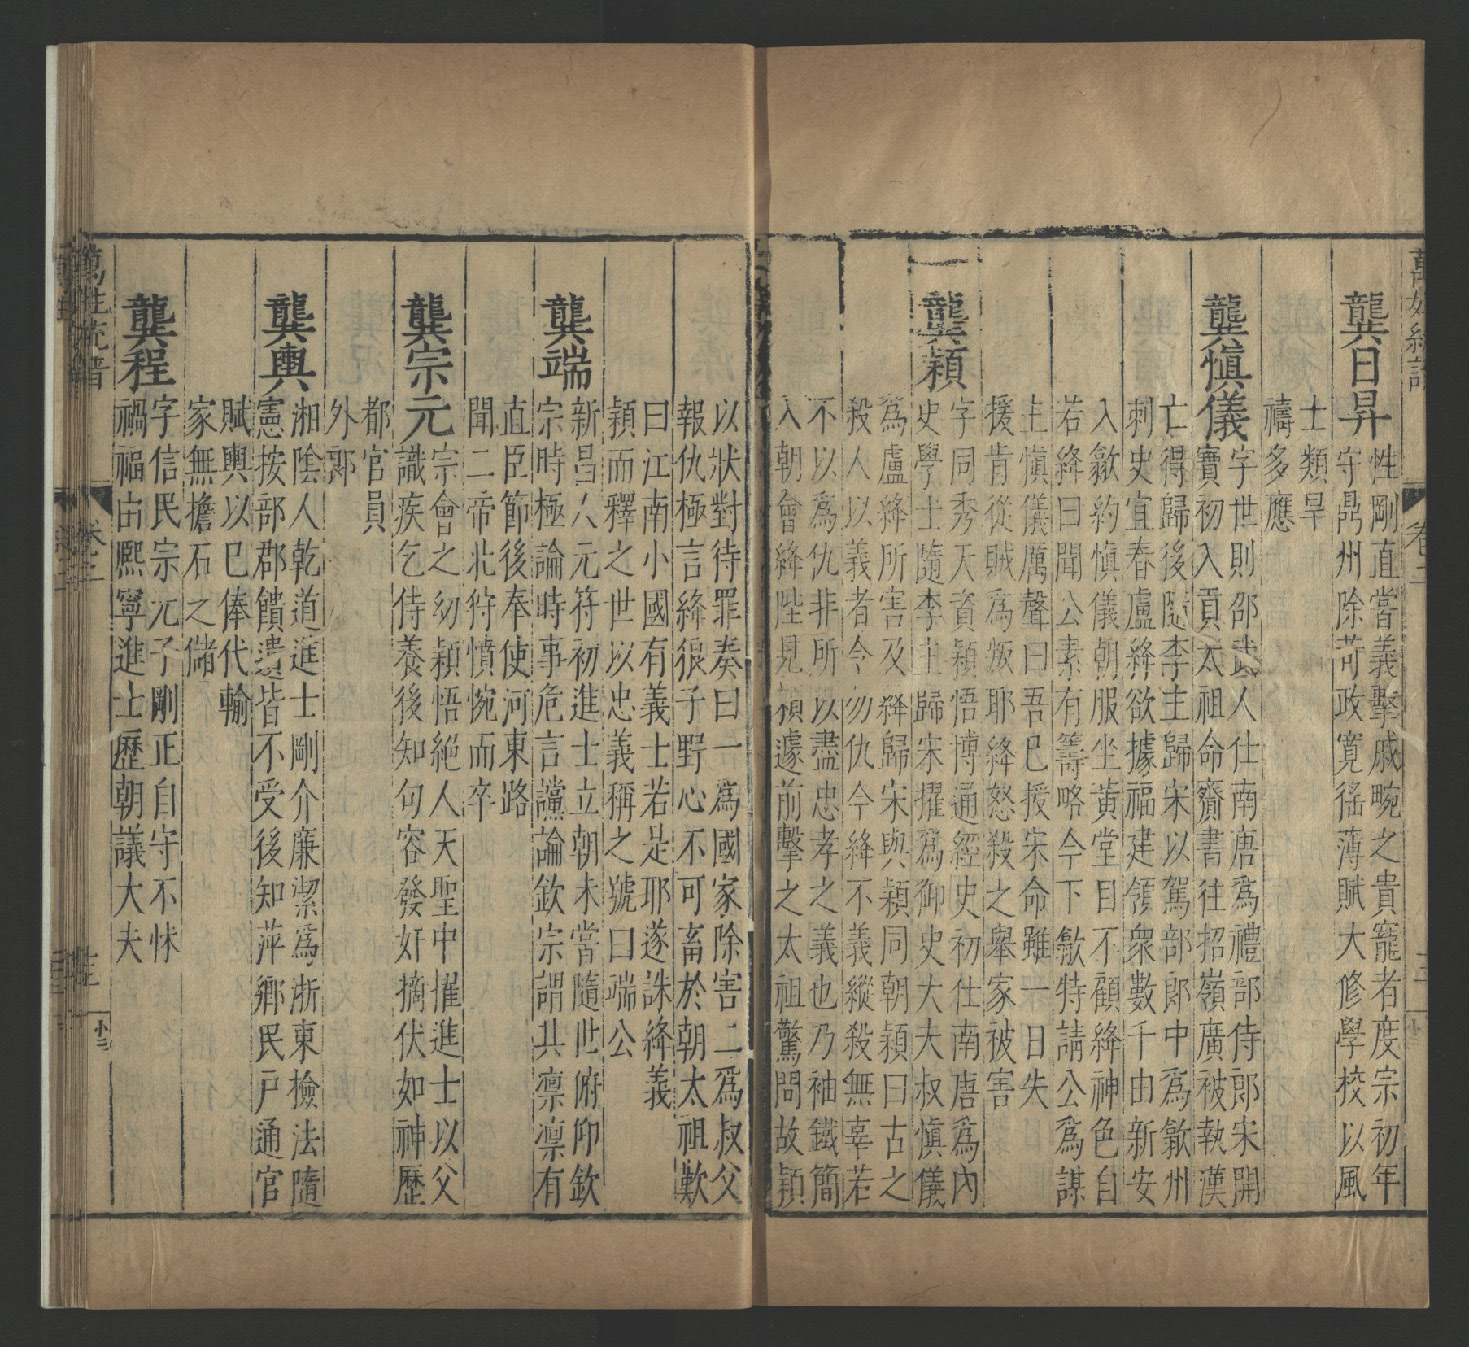 龔日昇 性剛直嘗義擊戚畹之貴寵者度宗初年
守鼎州除苛政寬徭薄賦大修學校以風
士類旱
禱多應
龔慎儀 字世則邵武人仕南唐爲禮部侍郎宋開
寶初入貢太祖命齎書往招嶺廣被執漢
亡得歸後隨李主歸宋以駕部郎中爲歙州
刺史宜春盧絳欲據福建領衆數千由新安
入歙約慎儀朝服坐黄堂目不顧絳神色自
若絳曰聞公素有籌略今下歙特請公爲謀
主慎儀厲聲曰吾已授宋命雖一日失
援肯從賊爲叛耶絳怒殺之舉家被害
龔穎 字同秀天資穎悟博通經史初仕南唐爲內
史學士隨李主歸宋擢爲御史大大叔慎儀
爲盧絳所害及絳歸宋與穎同朝穎曰古之
殺人以義者令勿仇今絳不義縱殺無辜若
不以爲仇非所以盡忠孝之義也乃袖鐵簡
入朝會絳陛見穎遽前擊之太祖驚問故穎
以狀對待罪奏曰一爲國家除害二爲叔父
報仇極言絳狼子野心不可畜於朝太祖歎
曰江南小國有義士若是耶遂誅絳義
穎而釋之世以忠義稱之號曰端公
龔端 新昌人元符初進士立朝未嘗隨世俯仰欽
宗時極論時事危言讜論欽宗謂其凛凛有
直臣節後奉使河東路
聞二帝北狩憤惋而卒
龔宗元 宗會之幼穎悟絕人天聖中擢進士以父
識疾乞侍養後知句容發奸擿伏如神歷
都官員
外郎
龔輿 湘陰人乾道進士剛介廉潔爲浙東撿法隨
憲按部郡饋遺皆不受後知萍鄉民戸逋官
賦輿以巳俸代輸
家無擔石之儲
龔程 字信民宗元子剛正自守不怵
禍福由熙寧進士歷朝議大夫
萬姓統譜 卷之三